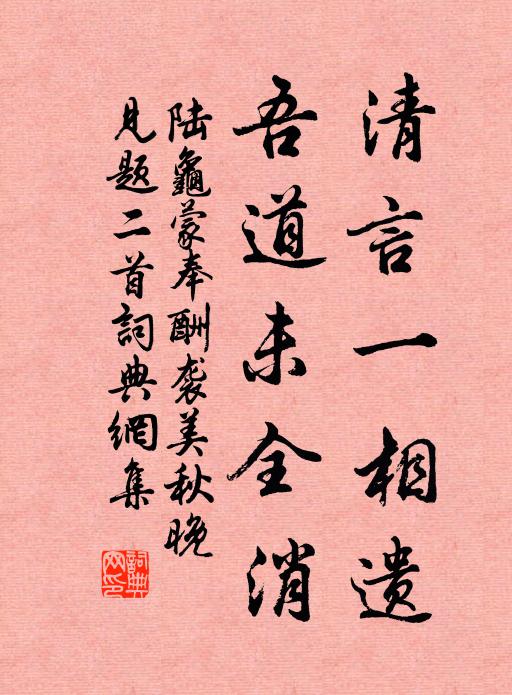 清言一相遗
吾道未全消
陆龜蒙奉酬袭美秋晚
见题二首詞典網集
詞典网印